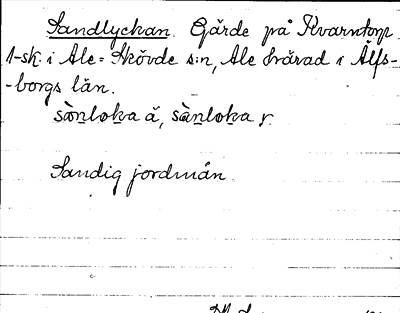 Sandlyckan. Gärde på Kvarntorp
1-sk. i Ale-Skövde s:n, Ale härad i Älfs-
-borgs län.
Sandig jordmån